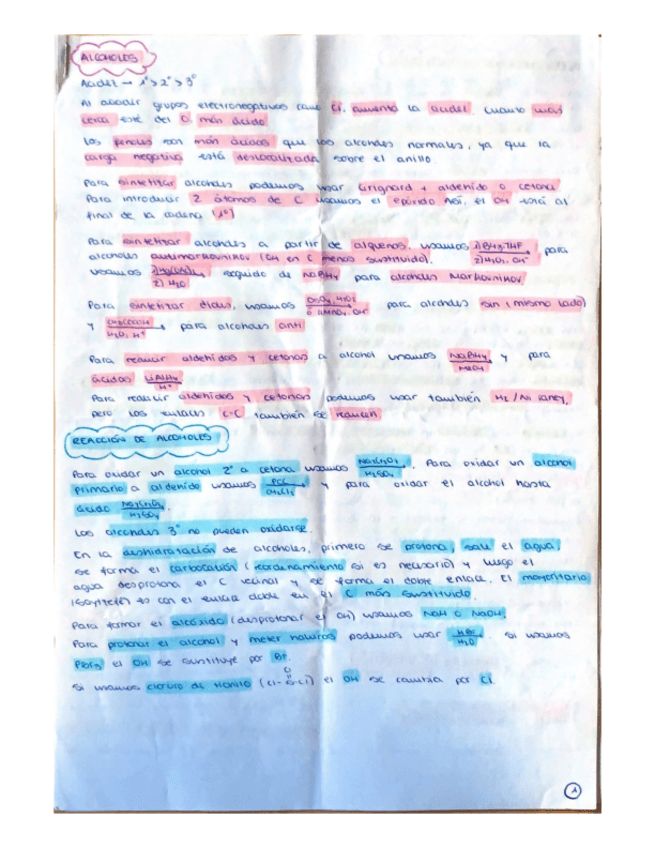 ALCOHOLES
Acidez → 1º > 2º > 3º
Al añadir grupos electronegativos como Cl, aumenta la acidez. Cuanto más
cerca esté del O, más ácido.
Los fenoles son más ácidos que los alcoholes normales, ya que la
carga negativa está deslocalizada sobre el anillo.
Para sintetizar alcoholes podemos usar Grignard + aldehído o cetona
Para introducir 2 átomos de C usamos el epóxido. Así, el OH está al
final de la cadena (1º)
Para sintetizar alcoholes a partir de alquenos, usamos 1) BH3·THF 2) H2O2, OH⁻ para
alcoholes antimarkovnikov (OH en C menos sustituido).
usamos 2) H2O seguido de NaBH4 para alcoholes Markovnikov.
Para sintetizar dioles, usamos OsO4, H2O2 o KMnO4, OH⁻ para alcoholes sin (mismo lado)
y CH3COOOH H2O, H⁺ para alcoholes anti
Para reducir aldehídos y cetonas a alcohol usamos NaBH4 MeOH y para
ácidos LiAlH4 H⁺
Para reducir aldehídos y cetonas podemos usar también H2/Ni Raney,
pero los enlaces C=C también se reducen
REACCIÓN DE ALCOHOLES
Para oxidar un alcohol 2º a cetona usamos Na2Cr2O7 H2SO4. Para oxidar un alcohol
primario a aldehído usamos PCC CH2Cl2 y para oxidar el alcohol hasta
ácido Na2Cr2O7 H2SO4.
Los alcoholes 3º no pueden oxidarse.
En la deshidratación de alcoholes, primero se protona, sale el agua,
se forma el carbocatión (reordenamiento si es necesario) y luego el
agua desprotona el C vecinal y se forma el doble enlace. El mayoritario
es con el enlace doble en el C más sustituido.
Para formar el alcóxido (desprotonar el OH) usamos NaH o NaOH.
Para protonar el alcohol y meter halogenos podemos usar HBr H2O. Si usamos
PBr3, el OH se sustituye por Br.
Si usamos cloruro de tionilo (Cl-S-Cl) el OH se cambia por Cl.
1